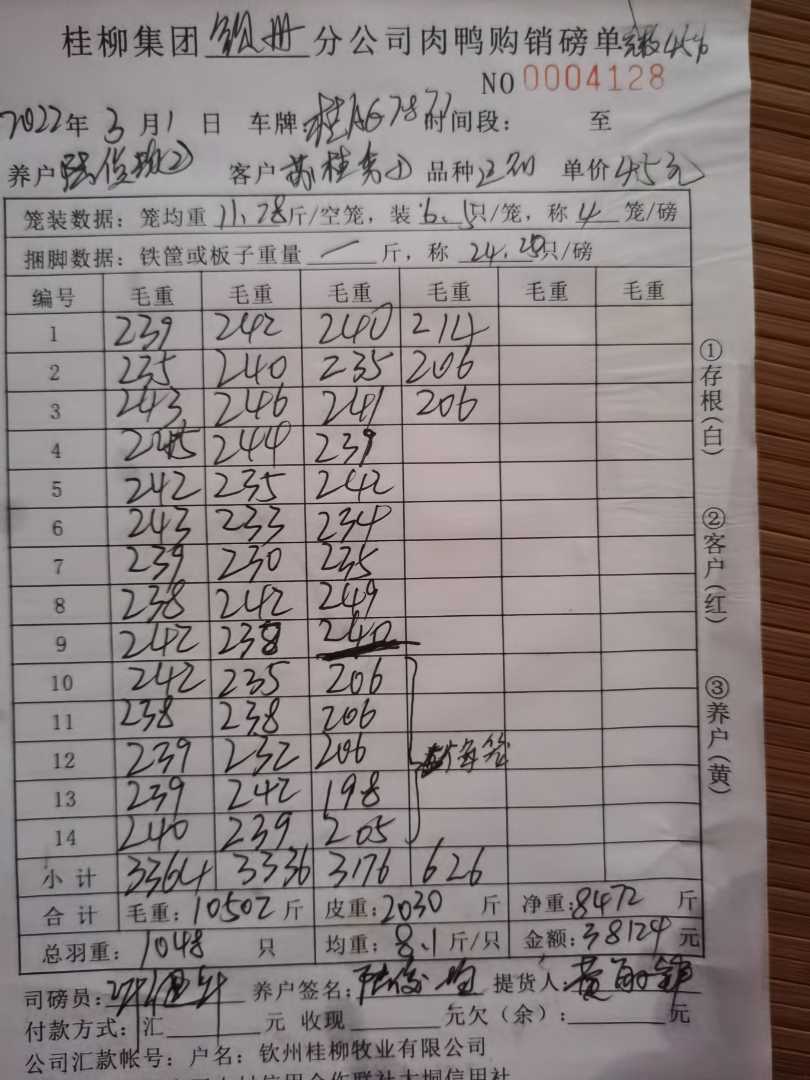 桂柳集团 钦州 分公司肉鸭购销磅单
NO 0004128
2022年 3 月 1 日 车牌: 桂 时间段: 至
养户 客户 品种 单价 4.5元
笼装数据: 笼均重 11.28斤/空笼, 装 6.5只/笼, 称 4 笼/磅
捆脚数据: 铁筐或板子重量 一 斤, 称 只/磅
编号 毛重 毛重 毛重 毛重 毛重 毛重
1 239 242 240 214
2 235 240 235 206
3 243 246 241 206
4 245 244 239
5 242 235 242
6 243 233 234
7 239 230 235
8 238 242 249
9 242 238 240
10 242 235 206
11 238 238 206
12 239 232 206 每笼
13 239 242 198
14 240 239 205
小计 3364 3336 3176 626
合计 毛重: 10502 斤 皮重: 2030 斤 净重: 8472 斤
总羽重: 1048 只 均重: 8.1 斤/只 金额: 38124 元
司磅员: 养户签名: 提货人:
付款方式: 汇 元 收现 元欠（余）: 元
公司汇款帐号: 户名: 钦州桂柳牧业有限公司
①存根（白）
②客户（红）
③养户（黄）